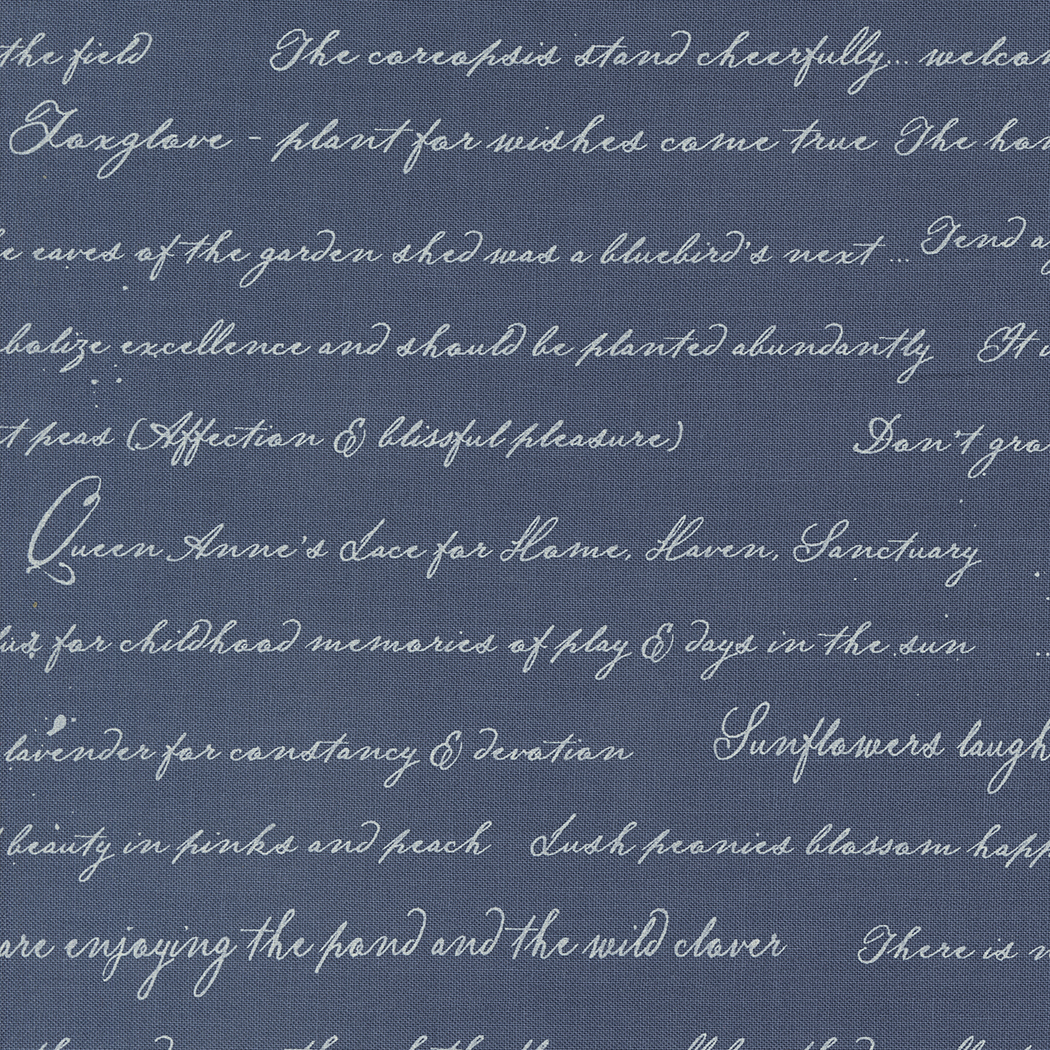 the field The coreopsis stand cheerfully... welcom
Foxglove - plant for wishes come true The hon
e eaves of the garden shed was a bluebird's next ... Tend a
bolize excellence and should be planted abundantly It
t peas (Affection & blissful pleasure) Don't gro
Queen Anne's Lace for Home, Haven, Sanctuary
for childhood memories of play & days in the sun ..
lavender for constancy & devotion Sunflowers laugh
beauty in pinks and peach Lush peonies blossom happ
are enjoying the pond and the wild clover There is